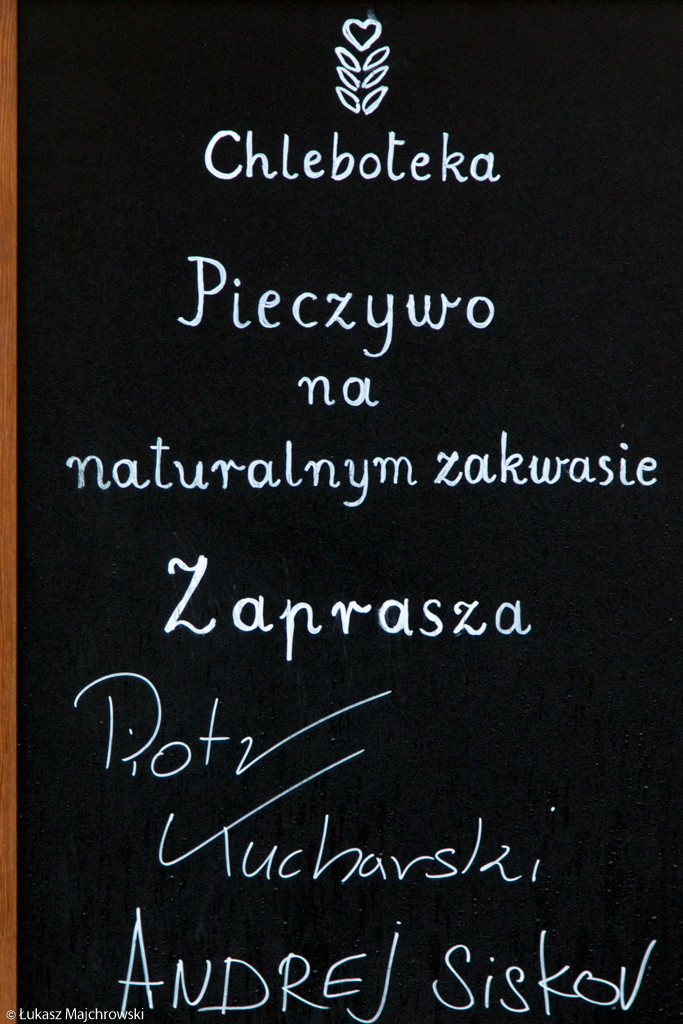 Chleboteka
Pieczywo
na
naturalnym zakwasie
Zaprasza
Piotr
Kucharski
ANDREJ SiSKOV
© Łukasz Majchrowski